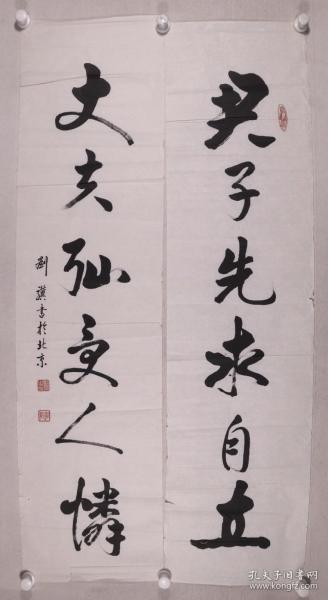 君子先求自立
丈夫恥受人憐
書於北京
孔夫子旧书网
www.kongfz.com